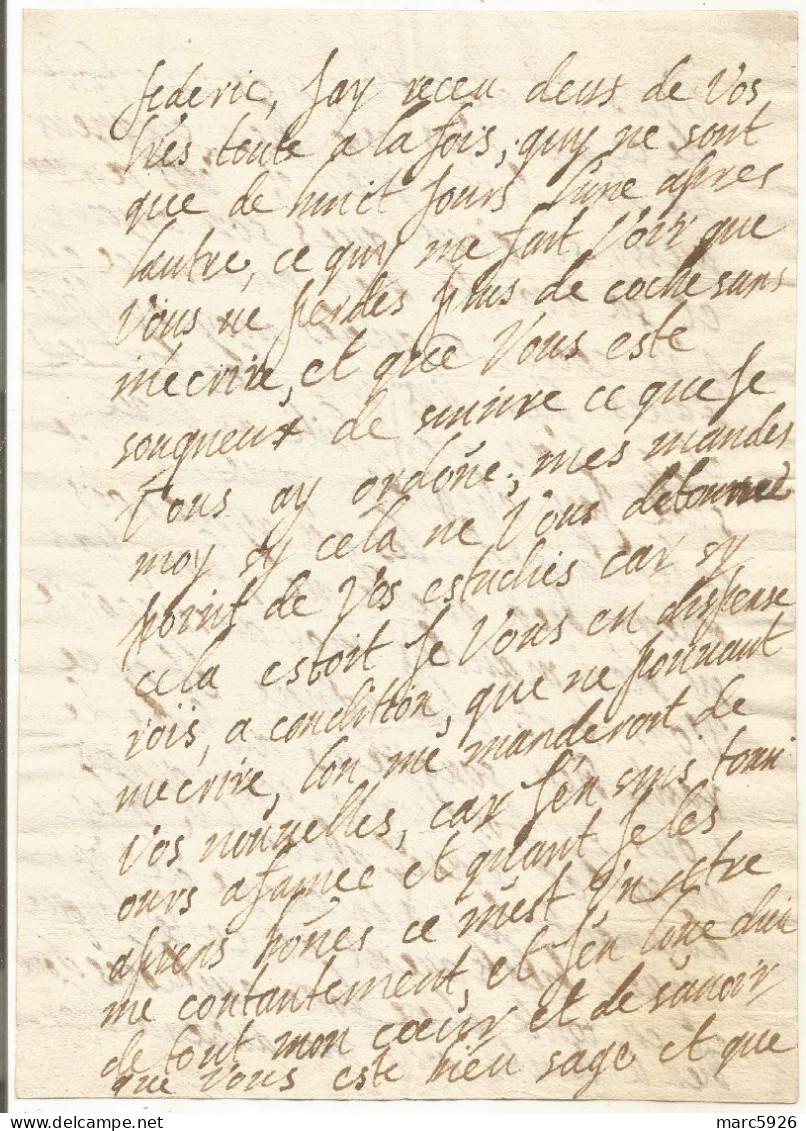 federic, Jay receu deus de Vos
lres toute a la fois, quy ne sont
que de huict Jours lune apres
lautre, ce quy me fait Voir que
Vous ne perdes plus de coche sans
mécrire, et que Vous este
sougneux de suiure ce que Je
Vous ay ordõne, mes mandes
moy sy cela ne Vous detourne
point de Vos estudies car sy
cela estoit Je Vous en dispense
rois, a condition, que ne pouuant
mecrire, lon me manderoit de
Vos nouuelles, car J'en suis touiu
ours afamee et quant Je les
aprens bõnes ce mest Vn extre
me contantement, et J'en loue dieu
de tout mon cœur et de sauoir
que Vous este bien sage et que
marc5926